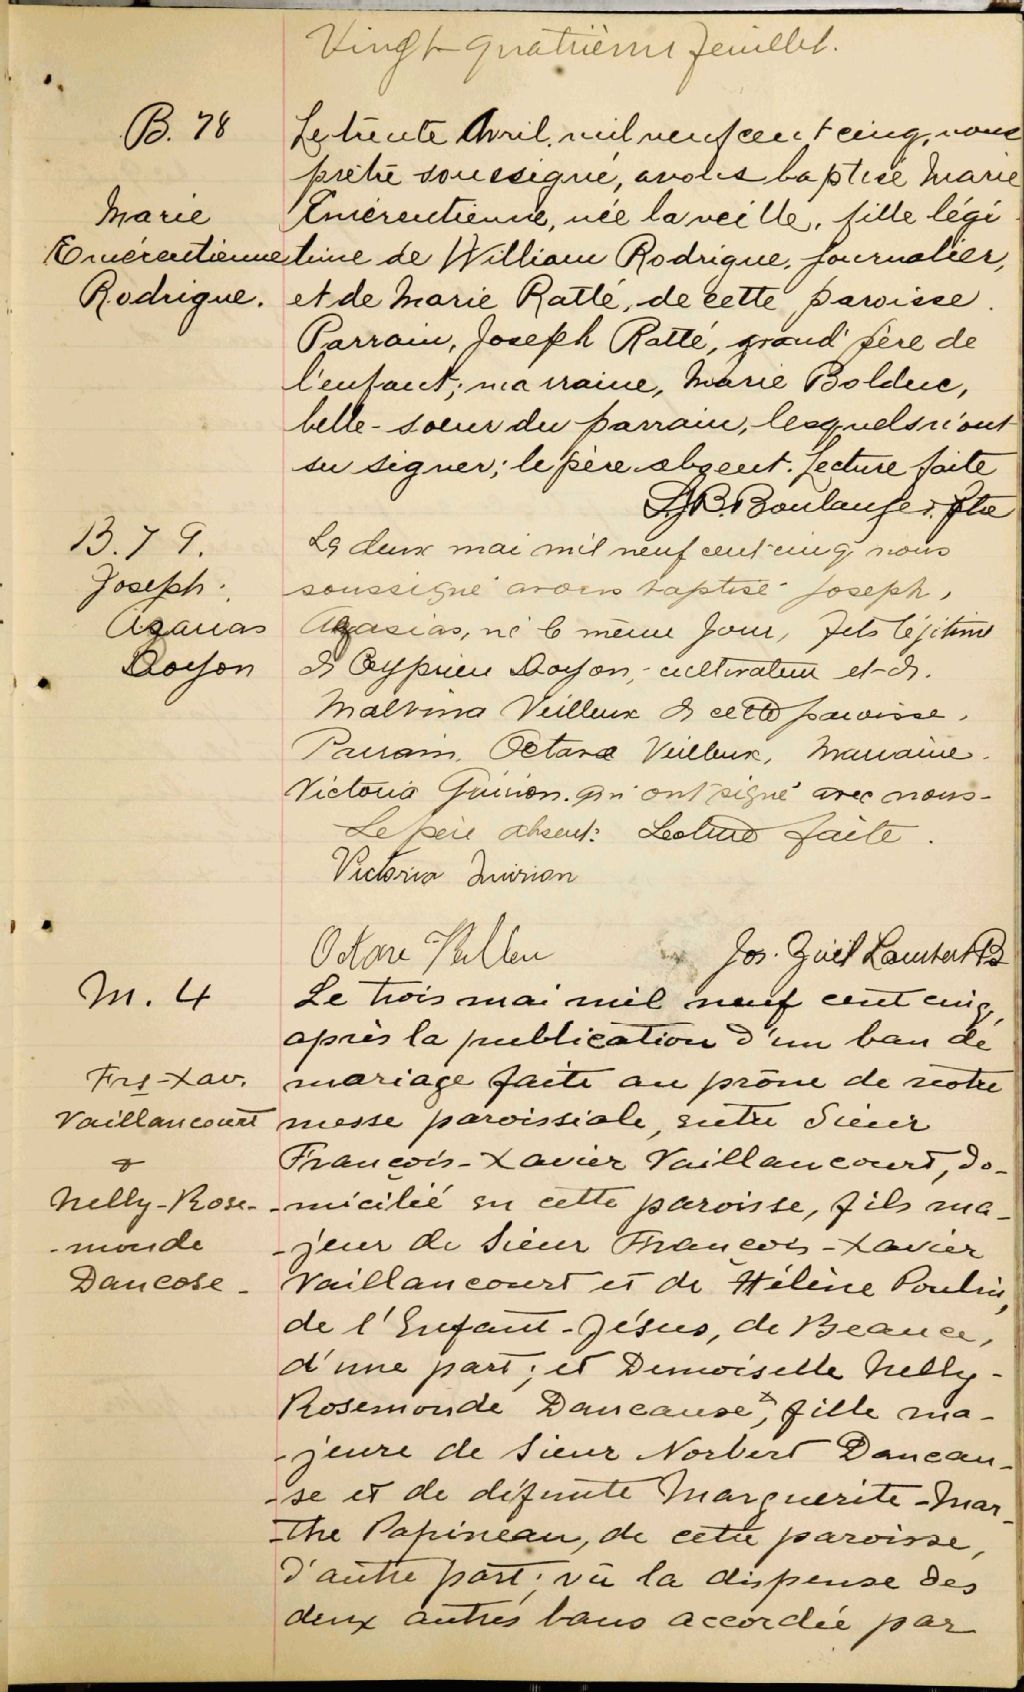 Vingt quatrième feuillet.
B. 78
Marie
Emérentienne
Rodrigue.
Le trente Avril, mil neuf cent cinq, nous
prêtre soussigné, avons baptisé Marie
Emérentienne, née la veille, fille légi
time de William Rodrigue, journalier,
et de Marie Ratté, de cette paroisse.
Parrain, Joseph Ratté, grand'père de
l'enfant; marraine, Marie Bolduc,
belle-soeur du parrain, lesquels n'ont
su signer; le père absent. Lecture faite
J.B. Boulanger. Ptre
B. 79.
Joseph.
Azarias
Doyon
Le deux mai mil neuf cent cinq nous
soussigné avons baptisé Joseph,
Azasias, né le même jour, fils légitime
de Cyprien Doyon, cultivateur et de
Malvina Veilleux de cette paroisse.
Parrain, Octave Veilleux, Marraine
Victoria Quirion. qui ont signé avec nous-
Le père absent. Lecture faite.
Victoria Quirion
Octave Veilleu
Jos. Lambert
M. 4
Frs-Xav.
Vaillancourt
&
Nelly-Rose-
-monde
Dancose-
Le trois mai mil neuf cent cinq,
après la publication d'un ban de
mariage faite au prône de notre
messe paroissiale, entre Sieur
François-Xavier Vaillancourt, do-
-micilié en cette paroisse, fils ma-
-jeur de Sieur François-Xavier
Vaillancourt et de Hélène Poulin,
de l'Enfant-Jésus, de Beauce,
d'une part; et Demoiselle Nelly-
Rosemonde Dancause, fille ma-
-jeure de Sieur Norbert Dancau-
-se et de défunte Marguerite-Mar-
-the Papineau, de cette paroisse,
d'autre part; vu la dispense des
deux autres bans accordée par